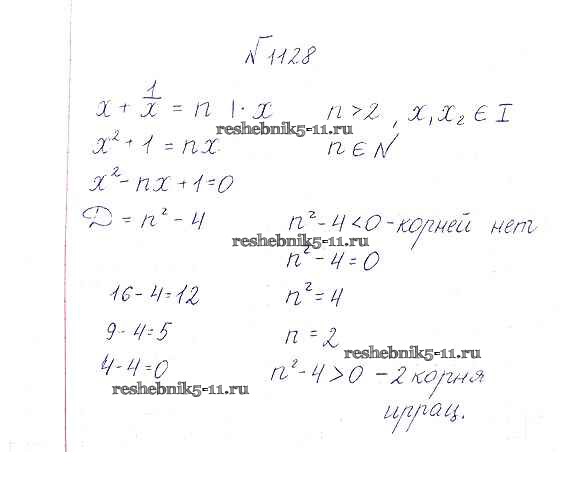 №1128
x + 1/x = n | · x n > 2, x₁x₂ ∈ I
reshebnik5-11.ru
x² + 1 = nx n ∈ N
x² - nx + 1 = 0
D = n² - 4 n² - 4 < 0 - корней нет
reshebnik5-11.ru
n² - 4 = 0
16 - 4 = 12 n² = 4
9 - 4 = 5 n = 2
reshebnik5-11.ru
4 - 4 = 0 n² - 4 > 0 - 2 корня
reshebnik5-11.ru
иррац.